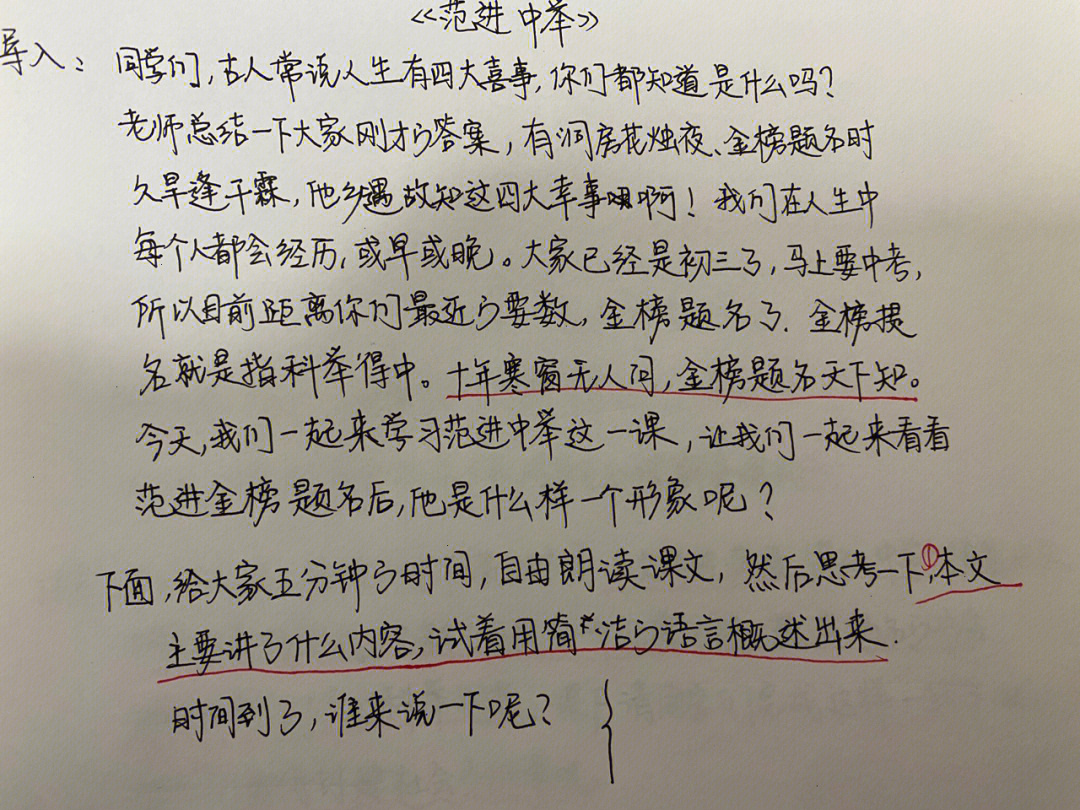 《范进中举》
导入：同学们，古人常说人生有四大喜事，你们都知道是什么吗？
老师总结一下大家刚才的答案，有洞房花烛夜、金榜题名时
久旱逢干霖，他乡遇故知这四大幸事啊！我们在人生中
每个人都会经历，或早或晚。大家已经是初三了，马上要中考，
所以目前距离你们最近的要数，金榜题名了．金榜提
名就是指科举得中。十年寒窗无人问，金榜题名天下知。
今天，我们一起来学习范进中举这一课，让我们一起来看看
范进金榜题名后，他是什么样一个形象呢？
下面，给大家五分钟的时间，自由朗读课文，然后思考一下，①本文
主要讲了什么内容，试着用简洁的语言概述出来．
时间到了，谁来说一下呢？｛